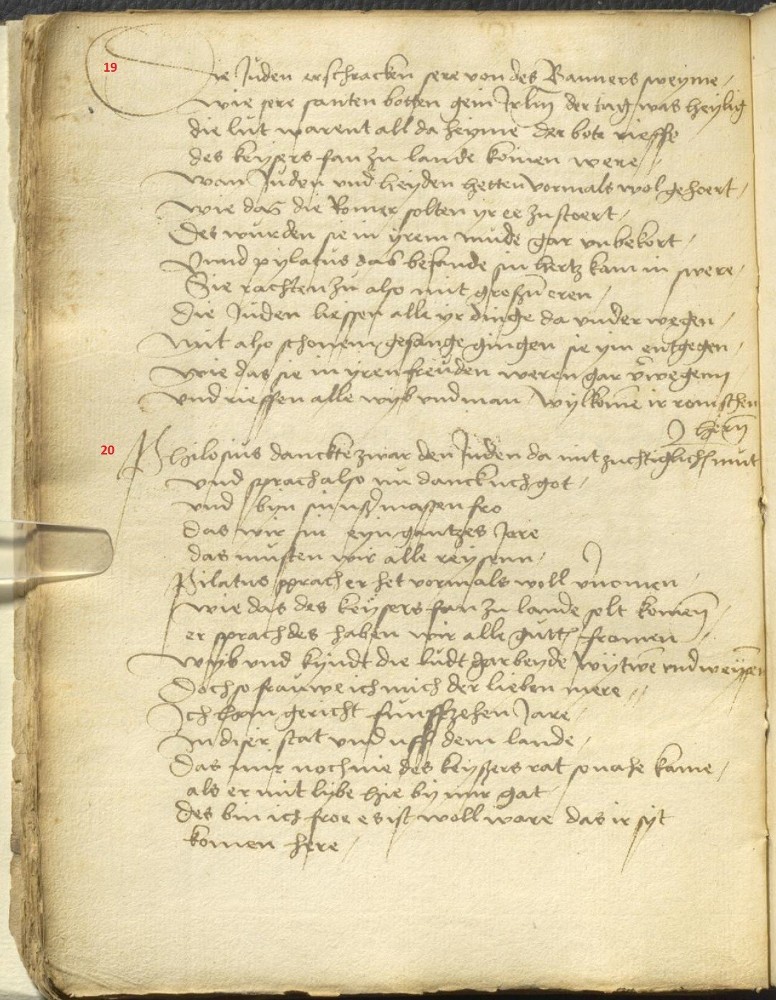 19
Die Juden erschracken sere von des Banners sweyme /
wie sere santen botten gein Jrlm̄ der tag was heylig
die lut warent all da heyme der bote rieffe
des keysers fan zu lande komen were //
wan Juden und heyden hetten vormals wol gehoert /
wie das die Romer solten yr ee zustoert /
Des wurden sie in yrem mude gar unbekort /
Vnnd pylatus das befande sin hertz kam in swere /
Sie rachten zu also mit groszū eren /
Die Juden liessen alle yr dinge da under wegen /
mit also schonem gesange gingen sie ym entgegen /
wie das sie in yren freuden weren gar v̄wegenn
vnd rieffen alle wyb vnd man / wylkome ir romschen
hern̄
20
Philosius danckte zwar den Juden da mit zuchtiglich mut
vnd sprach also nu danck uch got /
vnd byn sin usz massen fro
das wir sin eyn gantzes Jare
das musten wir alle reysenn /
Pilatus sprach er het vormals woll v̄nomen /
wie das des keysers fan zu lande solt komen̄ /
er sprach des haben wir alle gutt fromen /
wyb vnd kyndt die ludt gar beyde wytwe vnd weysen
Doch so frauwe ich mich der lieben mere //
Ich han gericht funffzehen Jare /
In diser stat vnd uff dem lande /
Das mir noch nie des keysers rat so nahe kame /
als er mit lybe hie by mir gat /
des bin ich froe es ist woll ware das ir syt
komen here /